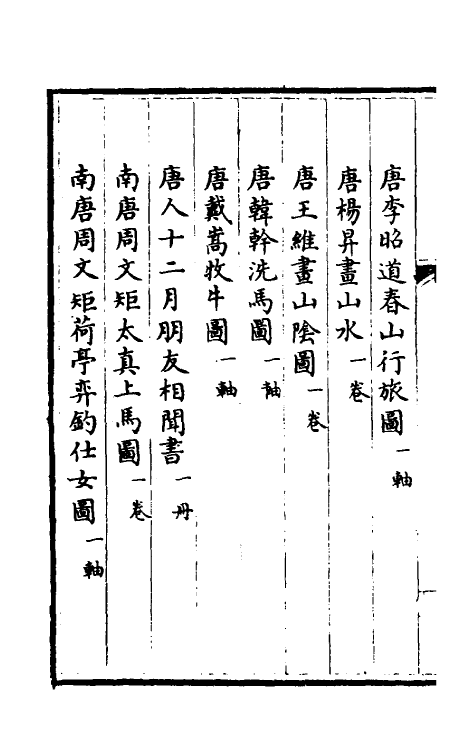 唐李昭道春山行旅圖一軸
唐楊昇畫山水一卷
唐王維畫山陰圖一卷
唐韓幹洗馬圖一軸
唐戴嵩牧牛圖一軸
唐人十二月朋友相聞書一冊
南唐周文矩太真上馬圖一卷
南唐周文矩荷亭弈釣仕女圖一軸